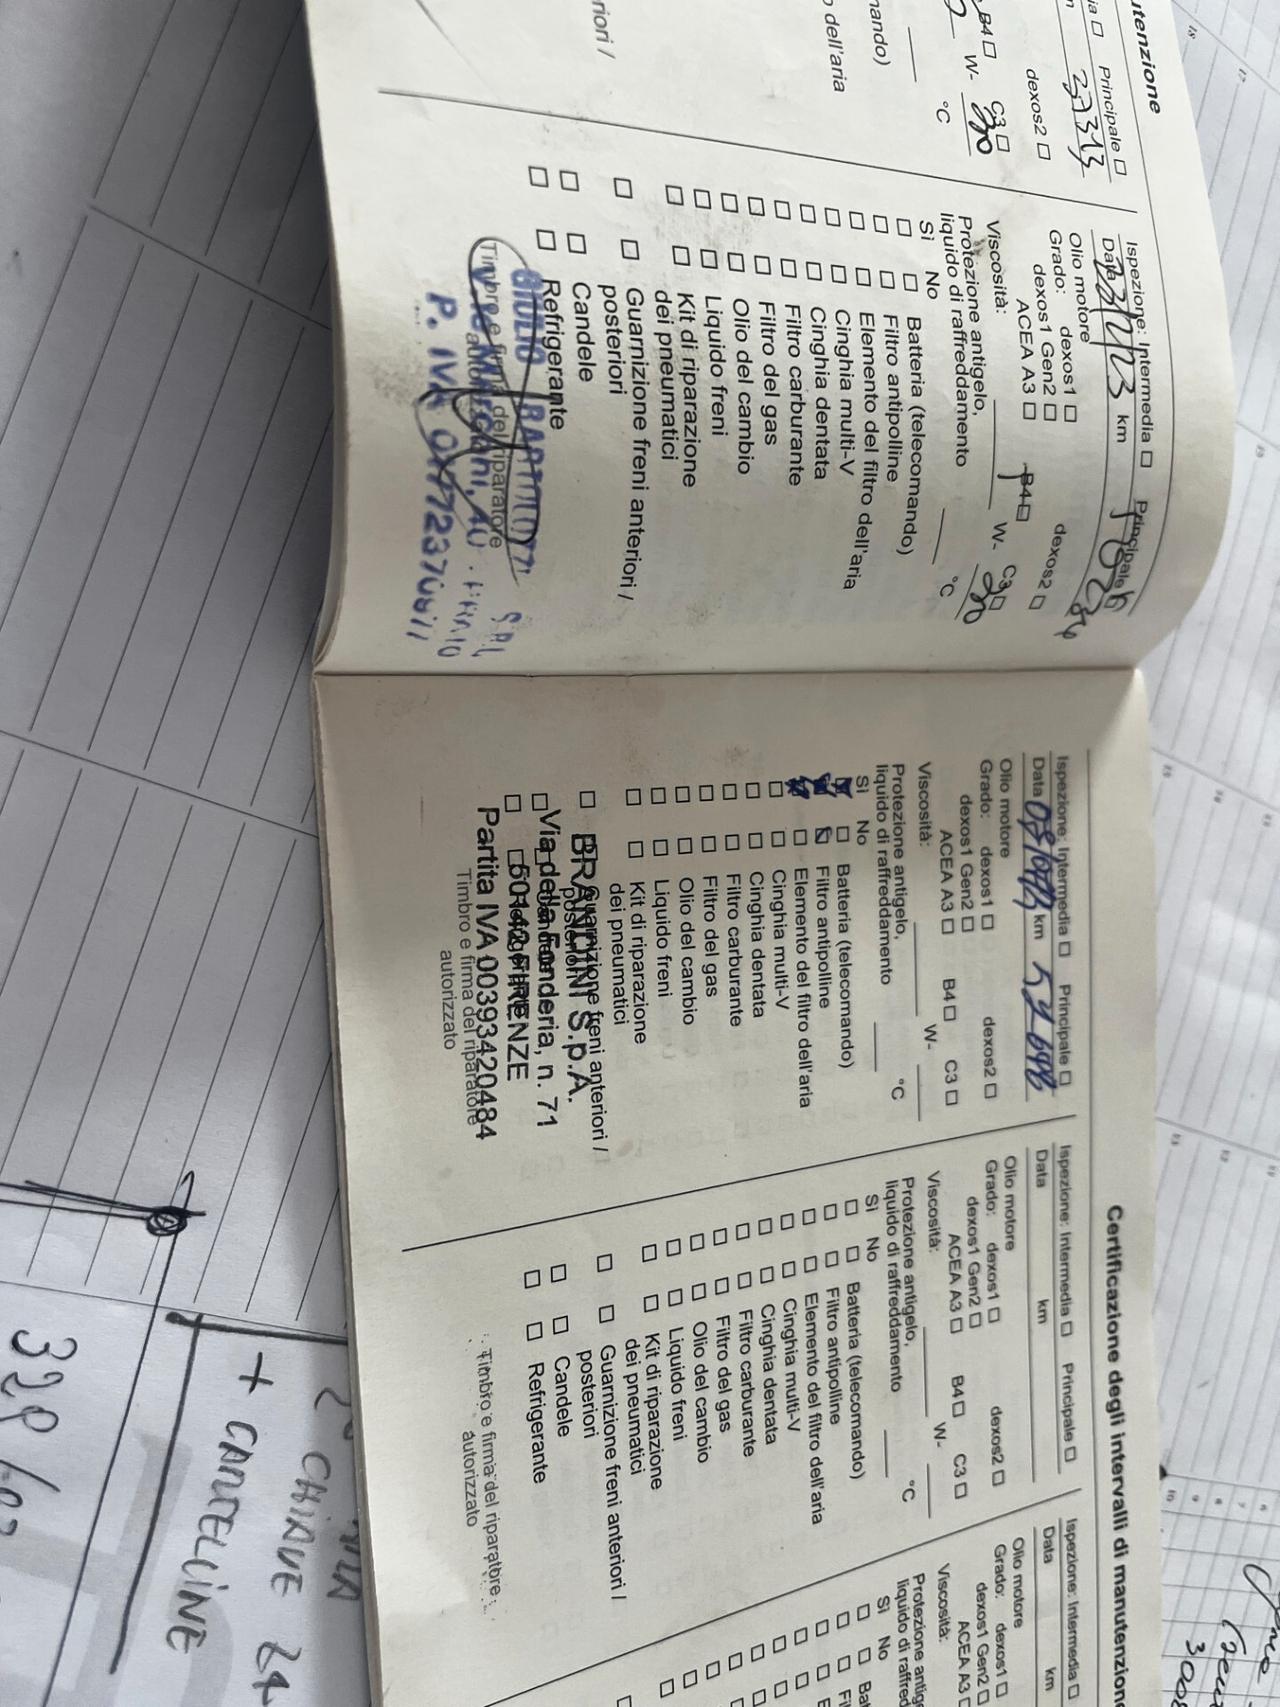 utenzione
Principale ☐
27313
dexos2 ☐
B4 ☐ C3 ☐
W- 30
°C
mando)
dell'aria
riori /
Ispezione: Intermedia ☐ Principale
Data km
Olio motore
Grado: dexos1 ☐ dexos2 ☐
dexos1 Gen2 ☐
ACEA A3 ☐ B4 ☐ C3 ☐
Viscosità: W- 30
Protezione antigelo,
liquido di raffreddamento °C
Sì No
☐ ☐ Batteria (telecomando)
☐ ☐ Filtro antipolline
☐ ☐ Elemento del filtro dell'aria
☐ ☐ Cinghia multi-V
☐ ☐ Cinghia dentata
☐ ☐ Filtro carburante
☐ ☐ Filtro del gas
☐ ☐ Olio del cambio
☐ ☐ Liquido freni
☐ ☐ Kit di riparazione
dei pneumatici
☐ ☐ Guarnizione freni anteriori /
posteriori
☐ ☐ Candele
☐ ☐ Refrigerante
Timbro e firma del riparatore
GIULIO BARTOLOZZI SRL
P. IVA
Certificazione degli intervalli di manutenzion
Ispezione: Intermedia ☐ Principale ☐
Data km 52698
Olio motore
Grado: dexos1 ☐ dexos2 ☐
dexos1 Gen2 ☐
ACEA A3 ☐ B4 ☐ C3 ☐
Viscosità: W-
Protezione antigelo,
liquido di raffreddamento °C
Sì No
☒ ☐ Batteria (telecomando)
☒ ☒ Filtro antipolline
☒ ☐ Elemento del filtro dell'aria
☐ ☐ Cinghia multi-V
☐ ☐ Cinghia dentata
☐ ☐ Filtro carburante
☐ ☐ Filtro del gas
☐ ☐ Olio del cambio
☐ ☐ Liquido freni
☐ ☐ Kit di riparazione
dei pneumatici
☐ Guarnizione freni anteriori /
posteriori
BRANDINI S.p.A.
Via della Fonderia, n. 71
50142 FIRENZE
Partita IVA 00393420484
Timbro e firma del riparatore
autorizzato
Ispezione: Intermedia ☐ Principale ☐
Data km
Olio motore
Grado: dexos1 ☐ dexos2 ☐
dexos1 Gen2 ☐
ACEA A3 ☐ B4 ☐ C3 ☐
Viscosità: W-
Protezione antigelo,
liquido di raffreddamento °C
Sì No
☐ ☐ Batteria (telecomando)
☐ ☐ Filtro antipolline
☐ ☐ Elemento del filtro dell'aria
☐ ☐ Cinghia multi-V
☐ ☐ Cinghia dentata
☐ ☐ Filtro carburante
☐ ☐ Filtro del gas
☐ ☐ Olio del cambio
☐ ☐ Liquido freni
☐ ☐ Kit di riparazione
dei pneumatici
☐ ☐ Guarnizione freni anteriori /
posteriori
☐ ☐ Candele
☐ ☐ Refrigerante
Timbro e firma del riparatore
autorizzato
Ispezione: Intermedia ☐
Data km
Olio motore
Grado: dexos1 ☐
dexos1 Gen2 ☐
ACEA A3 ☐
Viscosità:
Protezione antig
liquido di raffred
Sì No
☐ ☐ Bat
CHIAVE 24
+ CANDELINE